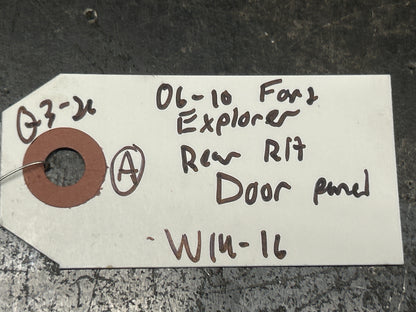 Q3-26
06-10 Ford
Explorer
A
Rear R/T
Door panel
W14-16